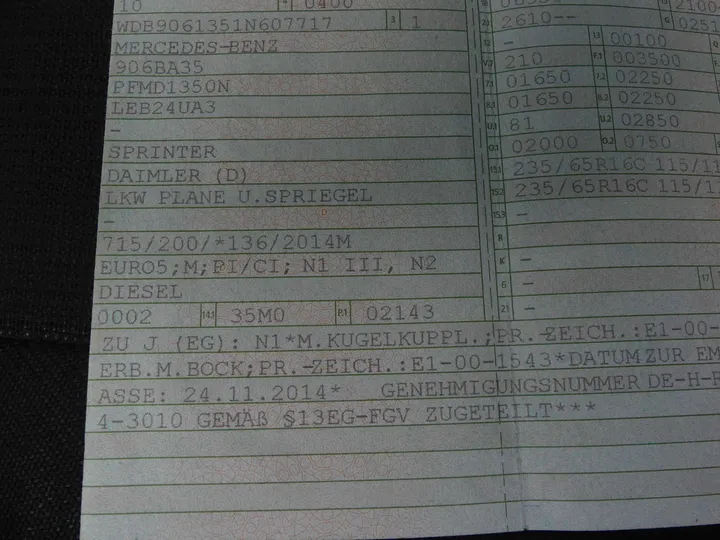 10 0400
WDB9061351N607717 3 1 20 2610-- G 0251
MERCEDES-BENZ 12 - 13 00100
906BA35 V.7 210 F.1 003500
PFMD1350N 7.1 01650 7.2 02250
LEB24UA3 8.1 01650 8.2 02250
- U.1 81 U.2 02850
SPRINTER O.1 02000 O.2 0750
DAIMLER (D) 15.1 235/65R16C 115/11
LKW PLANE U.SPRIEGEL 15.2 235/65R16C 115/1
- 15.3 -
715/200/*136/2014M R -
EURO5;M;PI/CI; N1 III, N2 K -
DIESEL 6 - 17
0002 14.1 35M0 P.1 02143 21 -
ZU J (EG): N1*M.KUGELKUPPL.;PR.-ZEICH.:E1-00-
ERB.M.BOCK;PR.-ZEICH.:E1-00-1543*DATUM ZUR EM
ASSE: 24.11.2014* GENEHMIGUNGSNUMMER DE-H-F
4-3010 GEMÄß §13EG-FGV ZUGETEILT***